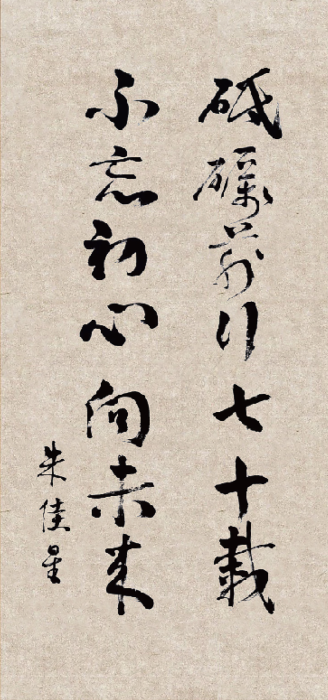 砥砺前行七十载
不忘初心向未来
朱佳星